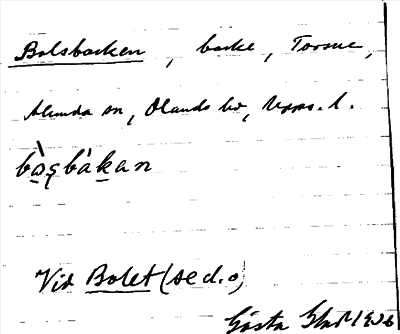 Bolsbacken, backe, Tomme,
Alunda sn, Olands hd, Upps. l.
bòsbákan
Vid Bolet (se d.o)
Gösta